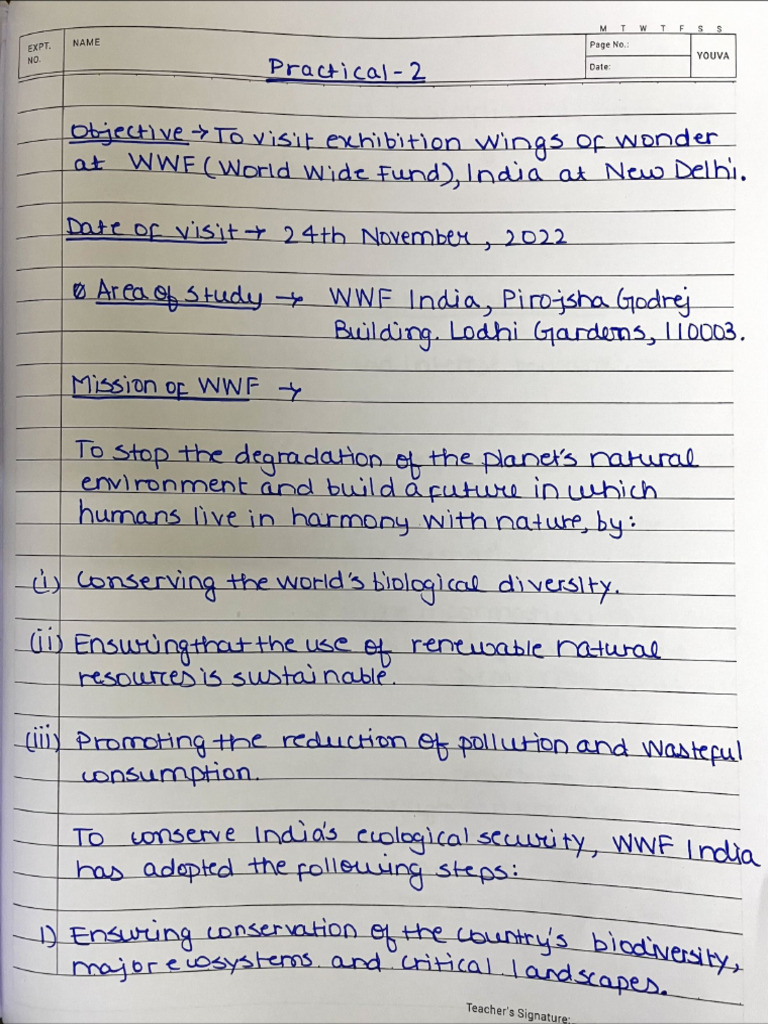 M T W T F S S
EXPT. NO.
NAME
Page No.:
Date:
YOUVA
Practical-2
Objective → To visit exhibition wings of wonder
at WWF (World Wide Fund), India at New Delhi.
Date of visit → 24th November, 2022
Area of Study → WWF India, Pirojsha Godrej
Building. Lodhi Gardens, 110003.
Mission of WWF →
To stop the degradation of the planet's natural
environment and build a future in which
humans live in harmony with nature, by:
(i) Conserving the world's biological diversity.
(ii) Ensuring that the use of renewable natural
resources is sustainable.
(iii) Promoting the reduction of pollution and wasteful
consumption.
To conserve India's ecological security, WWF India
has adopted the following steps:
1) Ensuring conservation of the country's biodiversity,
major ecosystems and critical landscapes.
Teacher's Signature: